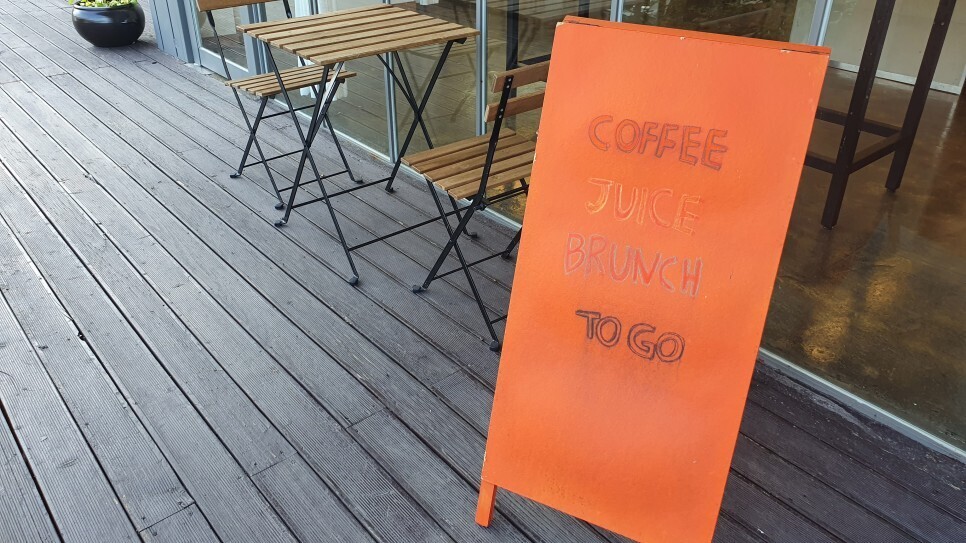 COFFEE
JUICE
BRUNCH
TO GO